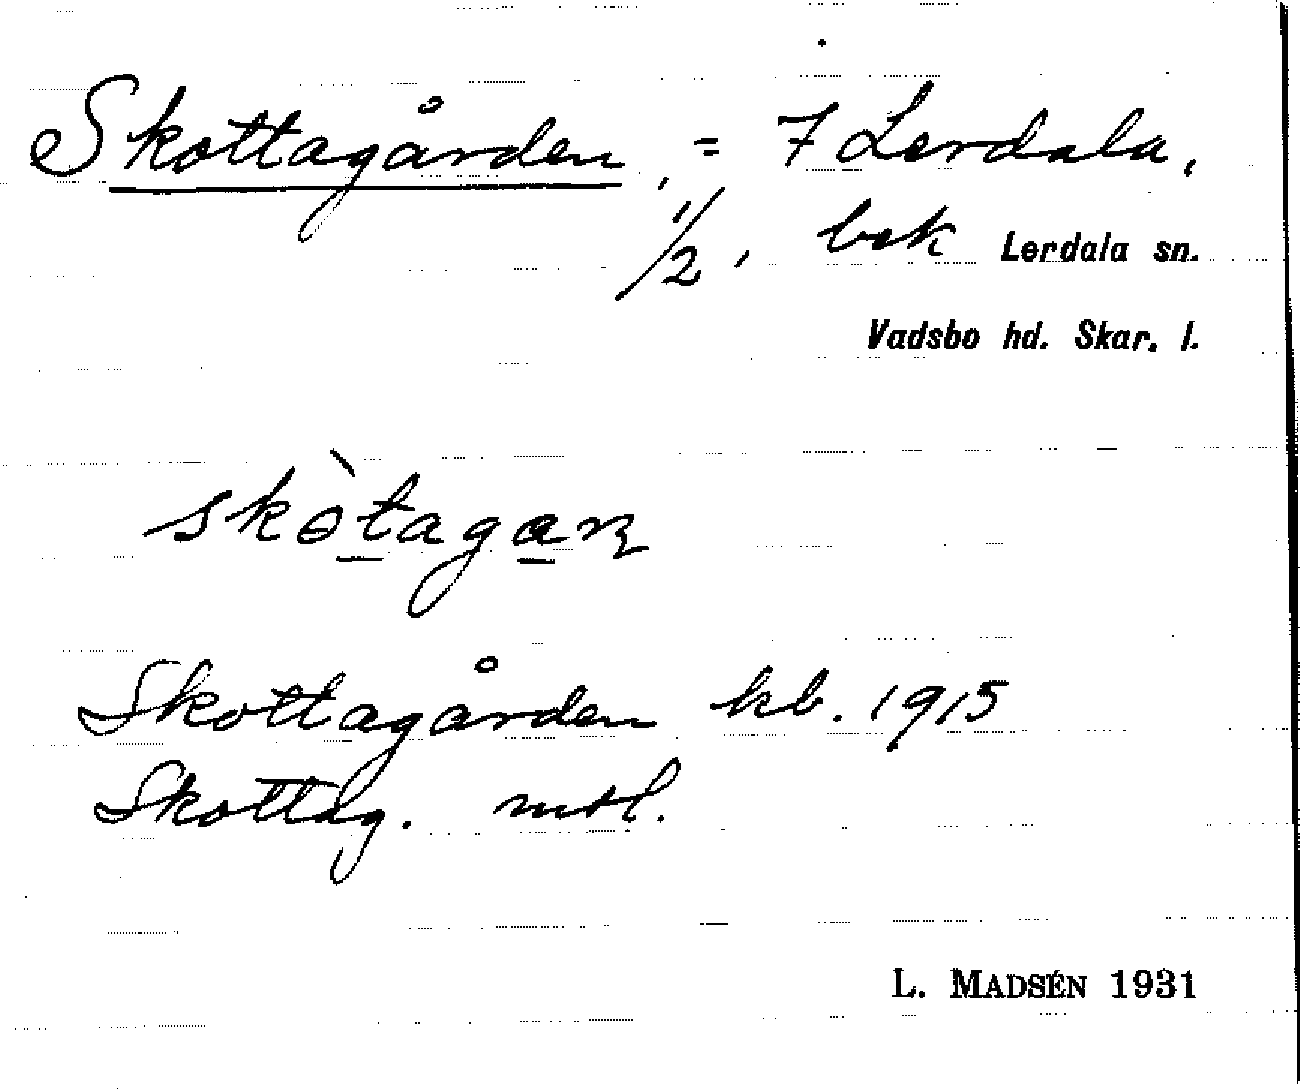 Skottagården, = 7 Lerdala,
1/2, bek Lerdala sn.
Vadsbo hd. Skar. l.
skètagaɳ
Skottagården kb. 1915
Skottag. mtl.
L. MADSÉN 1931